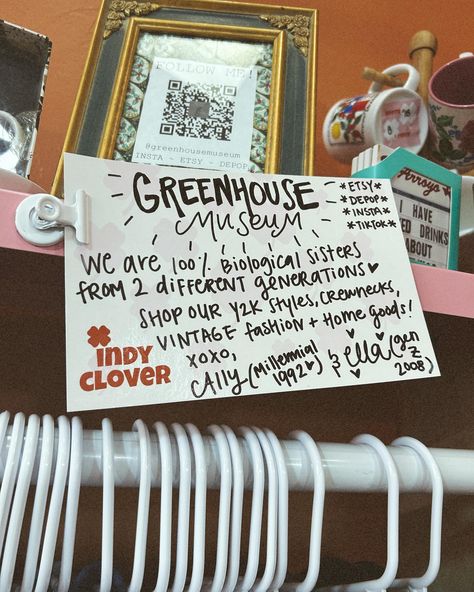 FOLLOW ME!
@greenhousemuseum
INSTA ~ ETSY ~ DEPOP
GREENHOUSE
MUSEUM
*ETSY*
*DEPOP*
*INSTA*
*TIKTOK*
WE ARE 100% Biological Sisters
FROM 2 Different generations♥
SHOP OUR Y2K STYLES, CREWNECKS,
VINTAGE fashion + Home goods!
XOXO,
Ally (Millennial 1992♥) & ella (gen Z 2008)
INDY
CLOVER
I HAVE
DRINKS
ABOUT